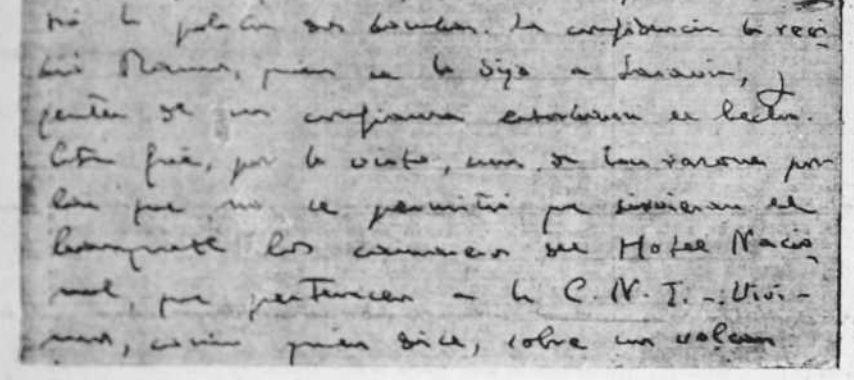 ró la policía dos bombas. La confidencia la reci-
bió Ramos, quien se lo dijo a Saravia, y
gentes de su confianza estorbaron el hecho.
Esta fué, por lo visto, una de las razones por
las que no se permitió que sirvieran el
banquete los camareros del Hotel Nacio-
nal, que pertenecen a la C.N.T. -. Vivi-
mos, como quien dice, sobre un volcan